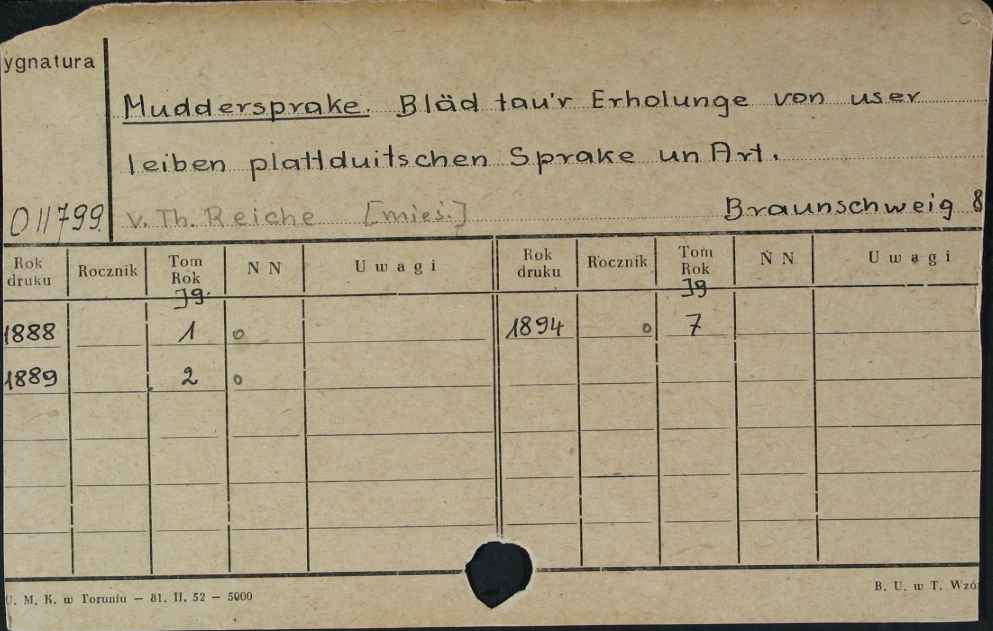 ygnatura
Muddersprake. Bläd tau'r Erholunge von user
leiben plattduitschen Sprake un Art.
011799 v. Th. Reiche [mies.] Braunschweig 8
Rok druku Rocznik Tom Rok N N Uwagi Rok druku Rocznik Tom Rok N N Uwagi
Jg. Jg
1888 1 o 1894 o 7
1889 2 o
U. M. K. w Toruniu — 81. II. 52 — 5000 B. U. w T. Wzó